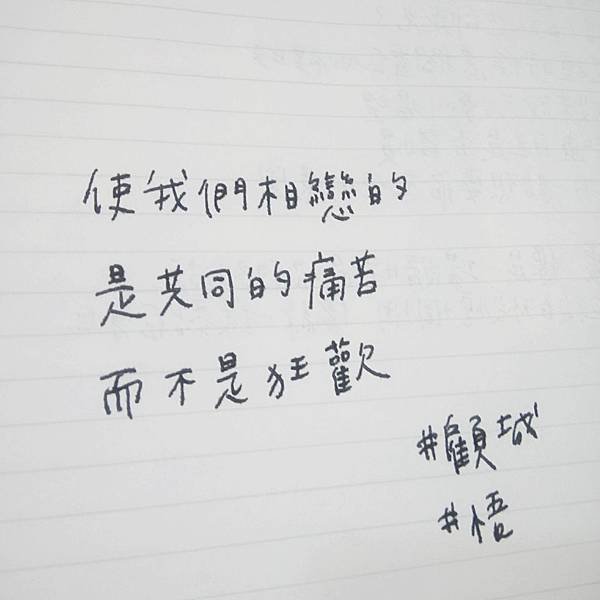 使我們相戀的
是共同的痛苦
而不是狂歡
#顧城
#梧